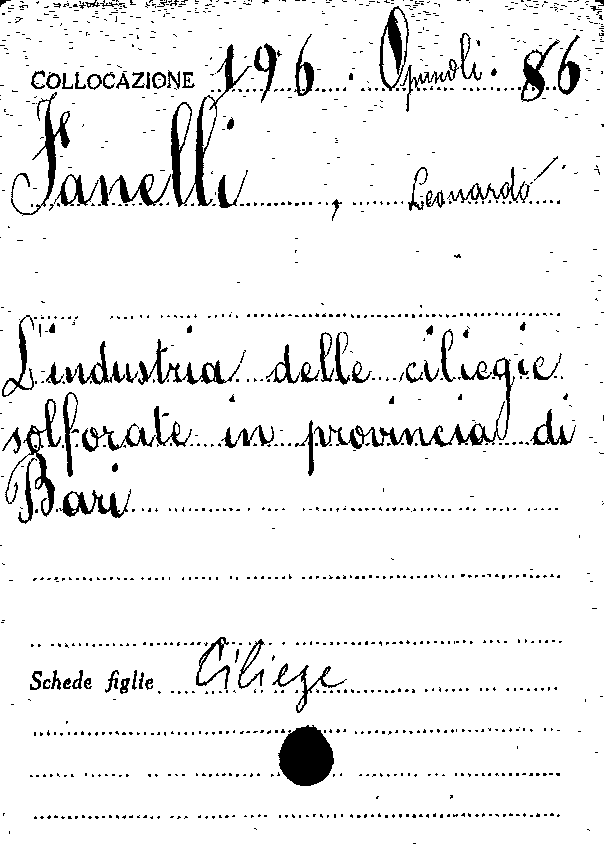 COLLOCAZIONE 196. Opuscoli. 86
Fanelli, Leonardo
L'industria delle ciliegie
solforate in provincia di
Bari
Schede figlie Ciliege